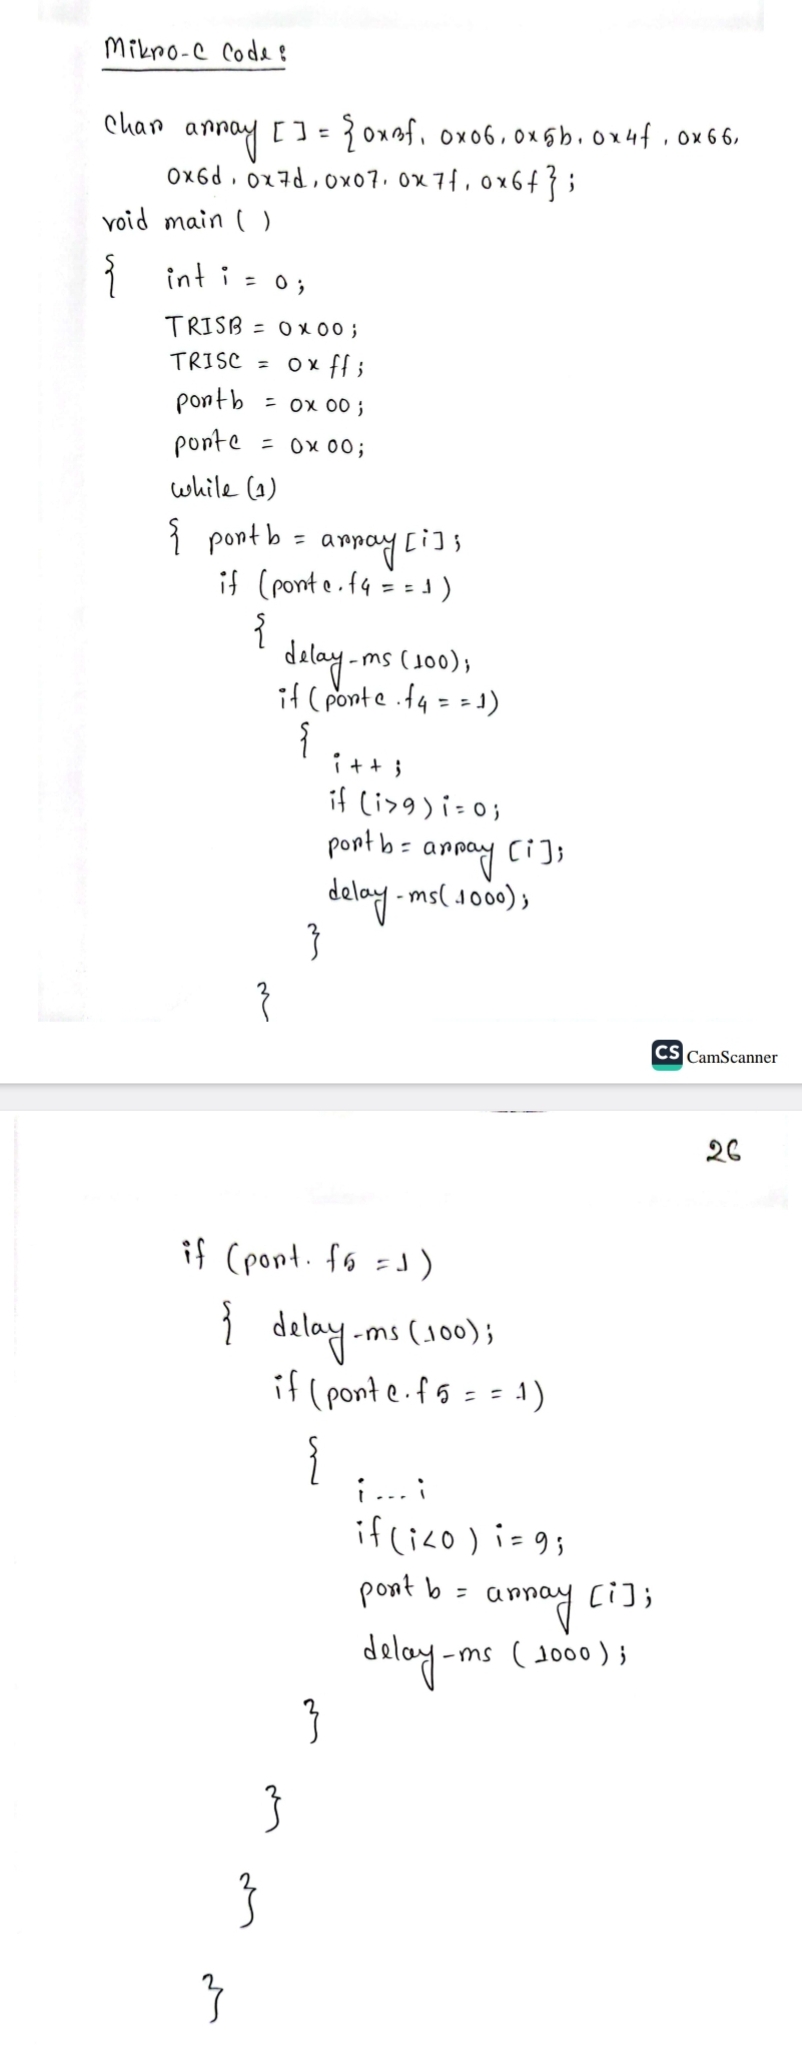 Mikro-C Code:
Char array [] = {0x3f, 0x06, 0x5b, 0x4f, 0x66,
0x6d, 0x7d, 0x07, 0x7f, 0x6f};
void main ( )
{ int i = 0;
TRISB = 0x00;
TRISC = 0xff;
portb = 0x00;
portc = 0x00;
while (1)
{ portb = array [i];
if (portc.f4 == 1)
{
delay-ms (100);
if (portc.f4 == 1)
{
i++;
if (i>9) i=0;
portb = array [i];
delay-ms(1000);
}
}
CS CamScanner
26
if (port. f5 =1)
{ delay-ms (100);
if (portc.f5 == 1)
{
i...i
if(i<0) i=9;
portb = array [i];
delay-ms (1000);
}
}
}
}